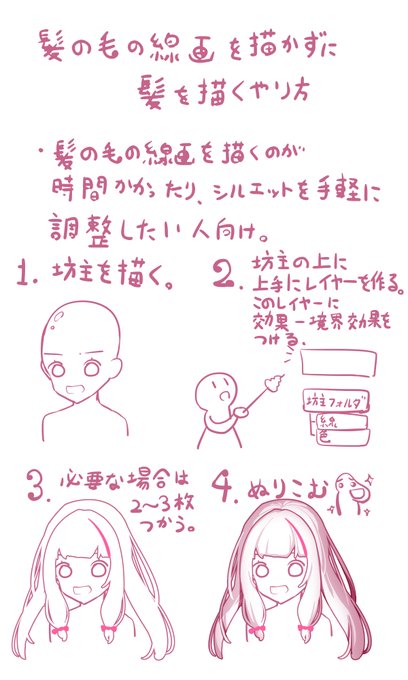 髪の毛の線画を描かずに
髪を描くやり方
・髪の毛の線画を描くのが
時間かかったり、シルエットを手軽に
調整したい人向け。
1. 坊主を描く。
2. 坊主の上に
上手にレイヤーを作る。
このレイヤーに
効果－境界効果を
つける。
坊主フォルダ
線
色
3. 必要な場合は
2〜3枚
つかう。
4. ぬりこむ